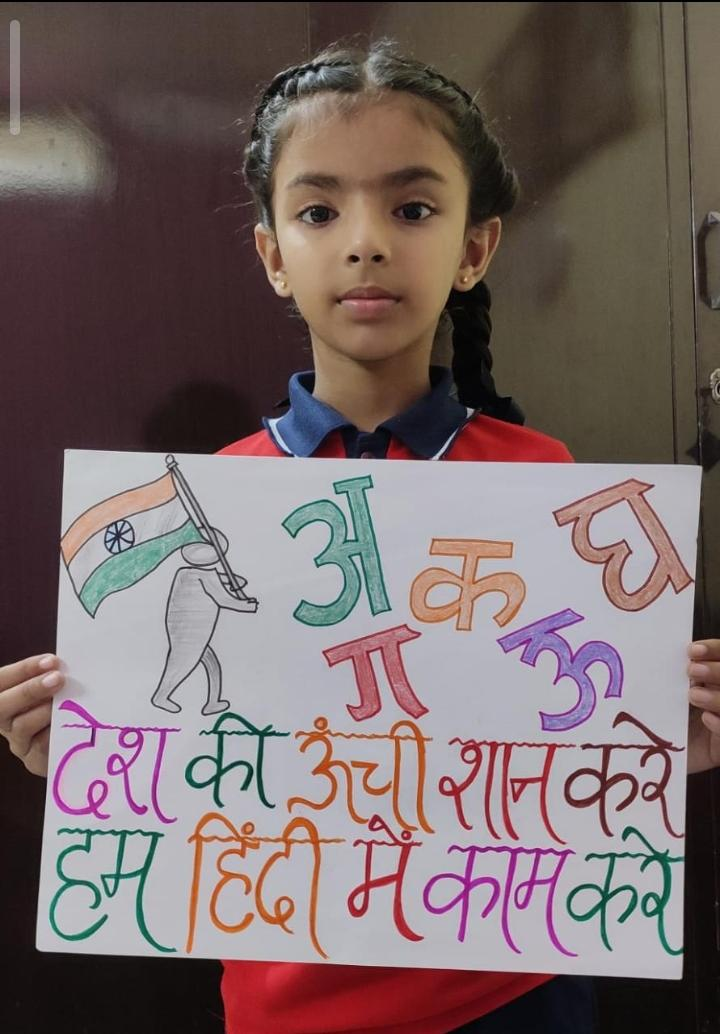 अ क घ
ग ऊ
देश की ऊंची शान करे
हम हिंदी में काम करे